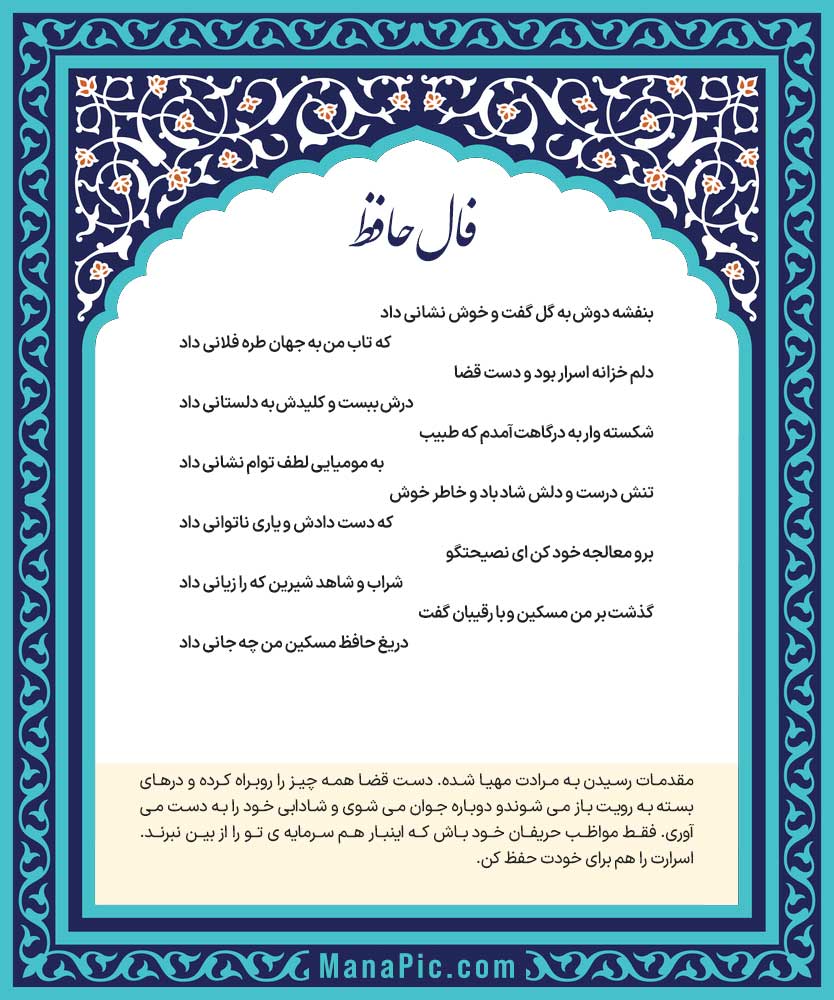 فال حافظ
بنفشه دوش به گل گفت و خوش نشانی داد
که تاب من به جهان طره فلانی داد
دلم خزانه اسرار بود و دست قضا
درش ببست و کلیدش به دلستانی داد
شکسته وار به درگاهت آمدم که طبیب
به مومیایی لطف توام نشانی داد
تنش درست و دلش شاد باد و خاطر خوش
که دست دادش و یاری ناتوانی داد
برو معالجه خود کن ای نصیحتگو
شراب و شاهد شیرین که را زیانی داد
گذشت بر من مسکین و با رقیبان گفت
دریغ حافظ مسکین من چه جانی داد
مقدمات رسیدن به مرادت مهیا شده. دست قضا همه چیز را روبراه کرده و درهای
بسته به رویت باز می شوندو دوباره جوان می شوی و شادابی خود را به دست می
آوری. فقط مواظب حریفان خود باش که اینبار هم سرمایه ی تو را از بین نبرند.
اسرارت را هم برای خودت حفظ کن.
ManaPic.com